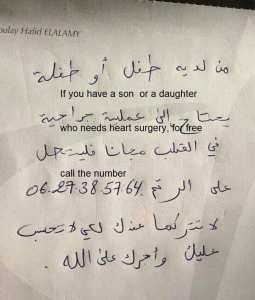 oulay Hafid ELALAMY
من لديه طفل أو طفلة
If you have a son or a daughter
يحتاج إلى عملية جراحية
who needs heart surgery, for free
في القلب مجانا فليتصل
call the number
على الرقم 06.27.38.57.64
لا تتركها عندك لكي لا تحسب
عليك وأجرك على الله.